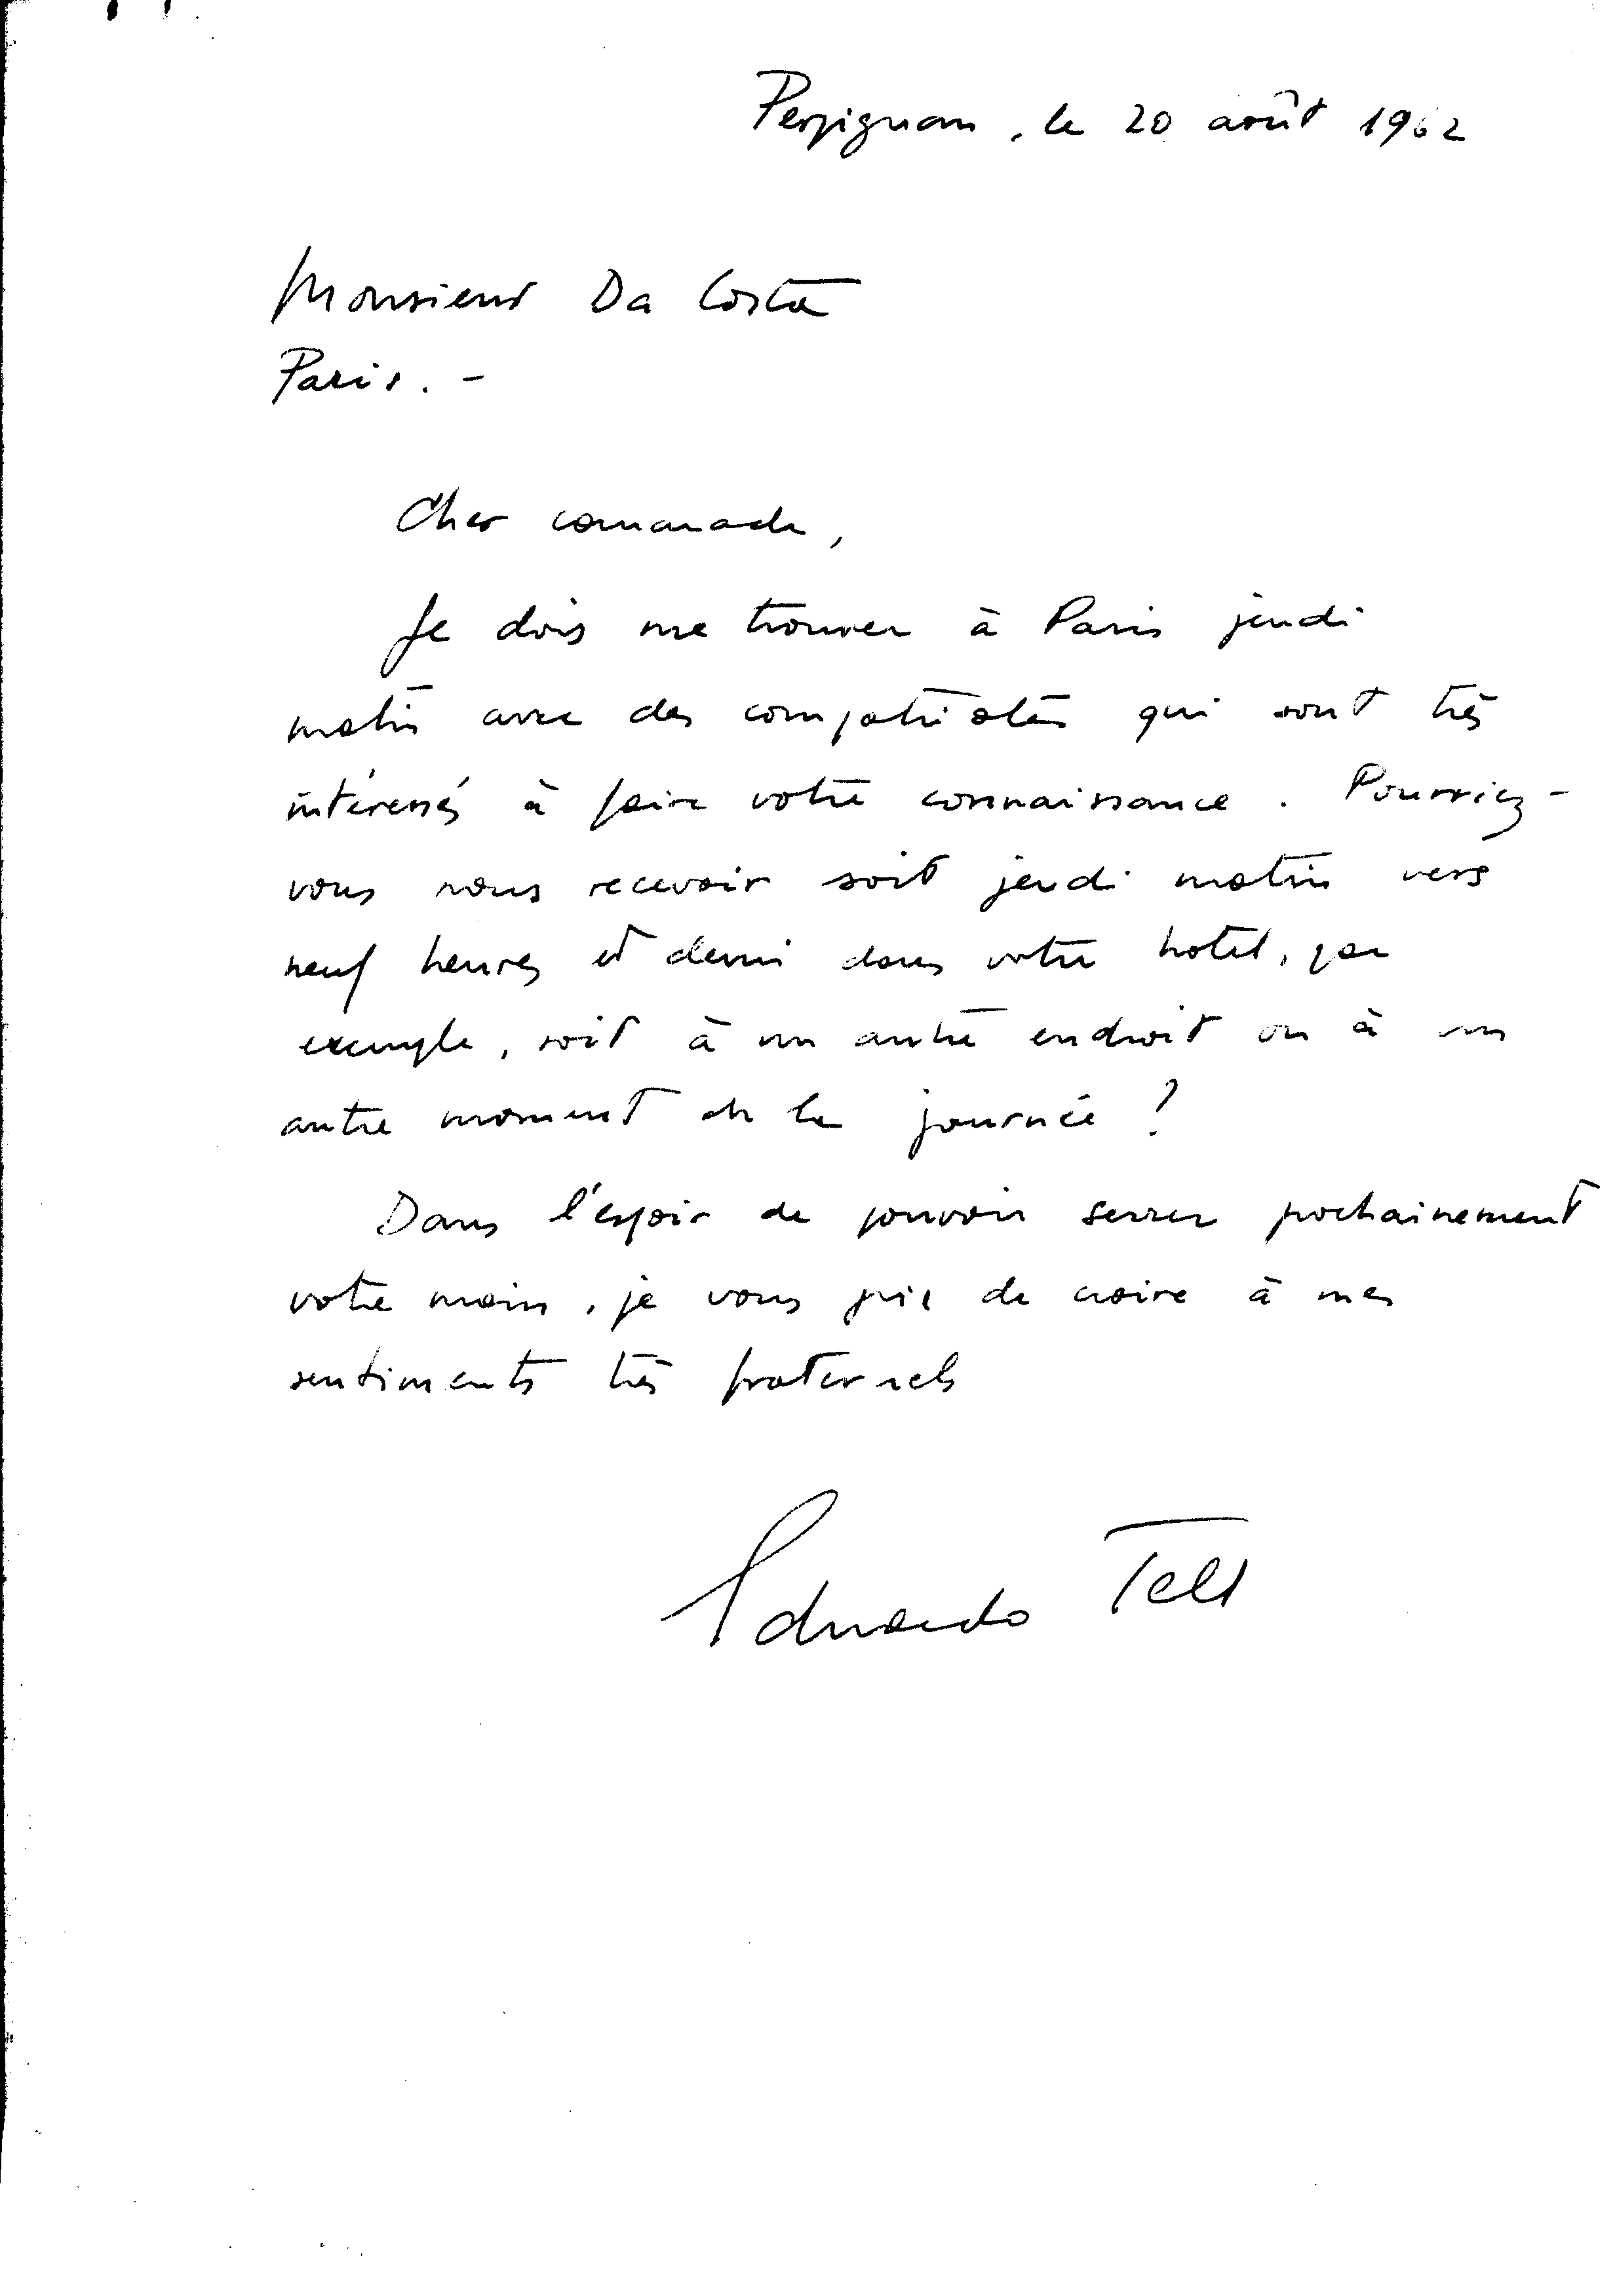 Perpignan, le 20 août 1962
Monsieur Da Costa
Paris. -
Cher camarade,
Je dois me trouver à Paris jeudi
matin avec des compatriotes qui sont très
intéressés à faire votre connaissance. Pourriez-
vous nous recevoir soit jeudi matin vers
neuf heures et demi dans votre hotel, par
exemple, soit à un autre endroit ou à un
autre moment de la journée ?
Dans l'espoir de pouvoir serrer prochainement
votre main, je vous prie de croire à mes
sentiments très fraternels
Eduardo Tell